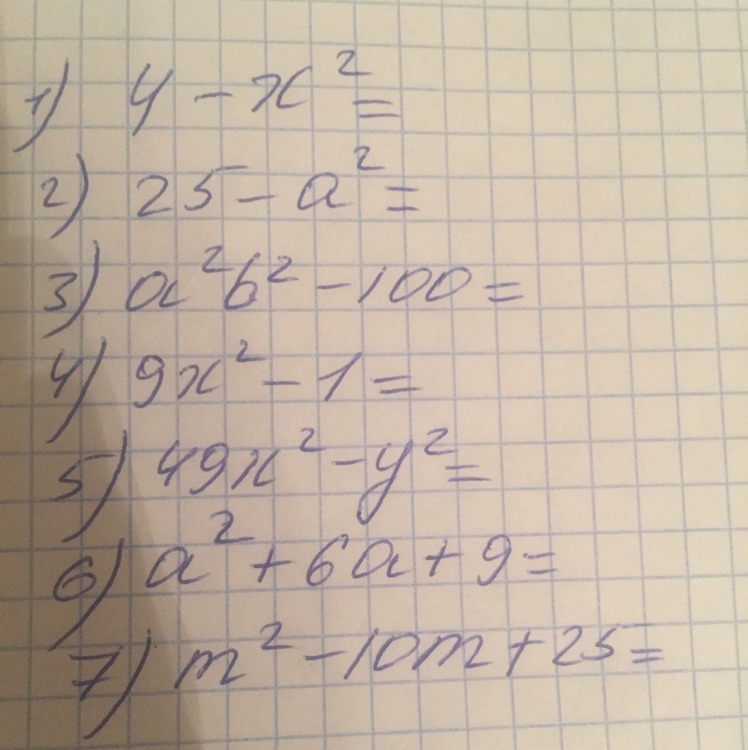 1) 4 - x² =
2) 25 - a² =
3) a²b² - 100 =
4) 9x² - 1 =
5) 49x² - y² =
6) a² + 6a + 9 =
7) m² - 10m + 25 =